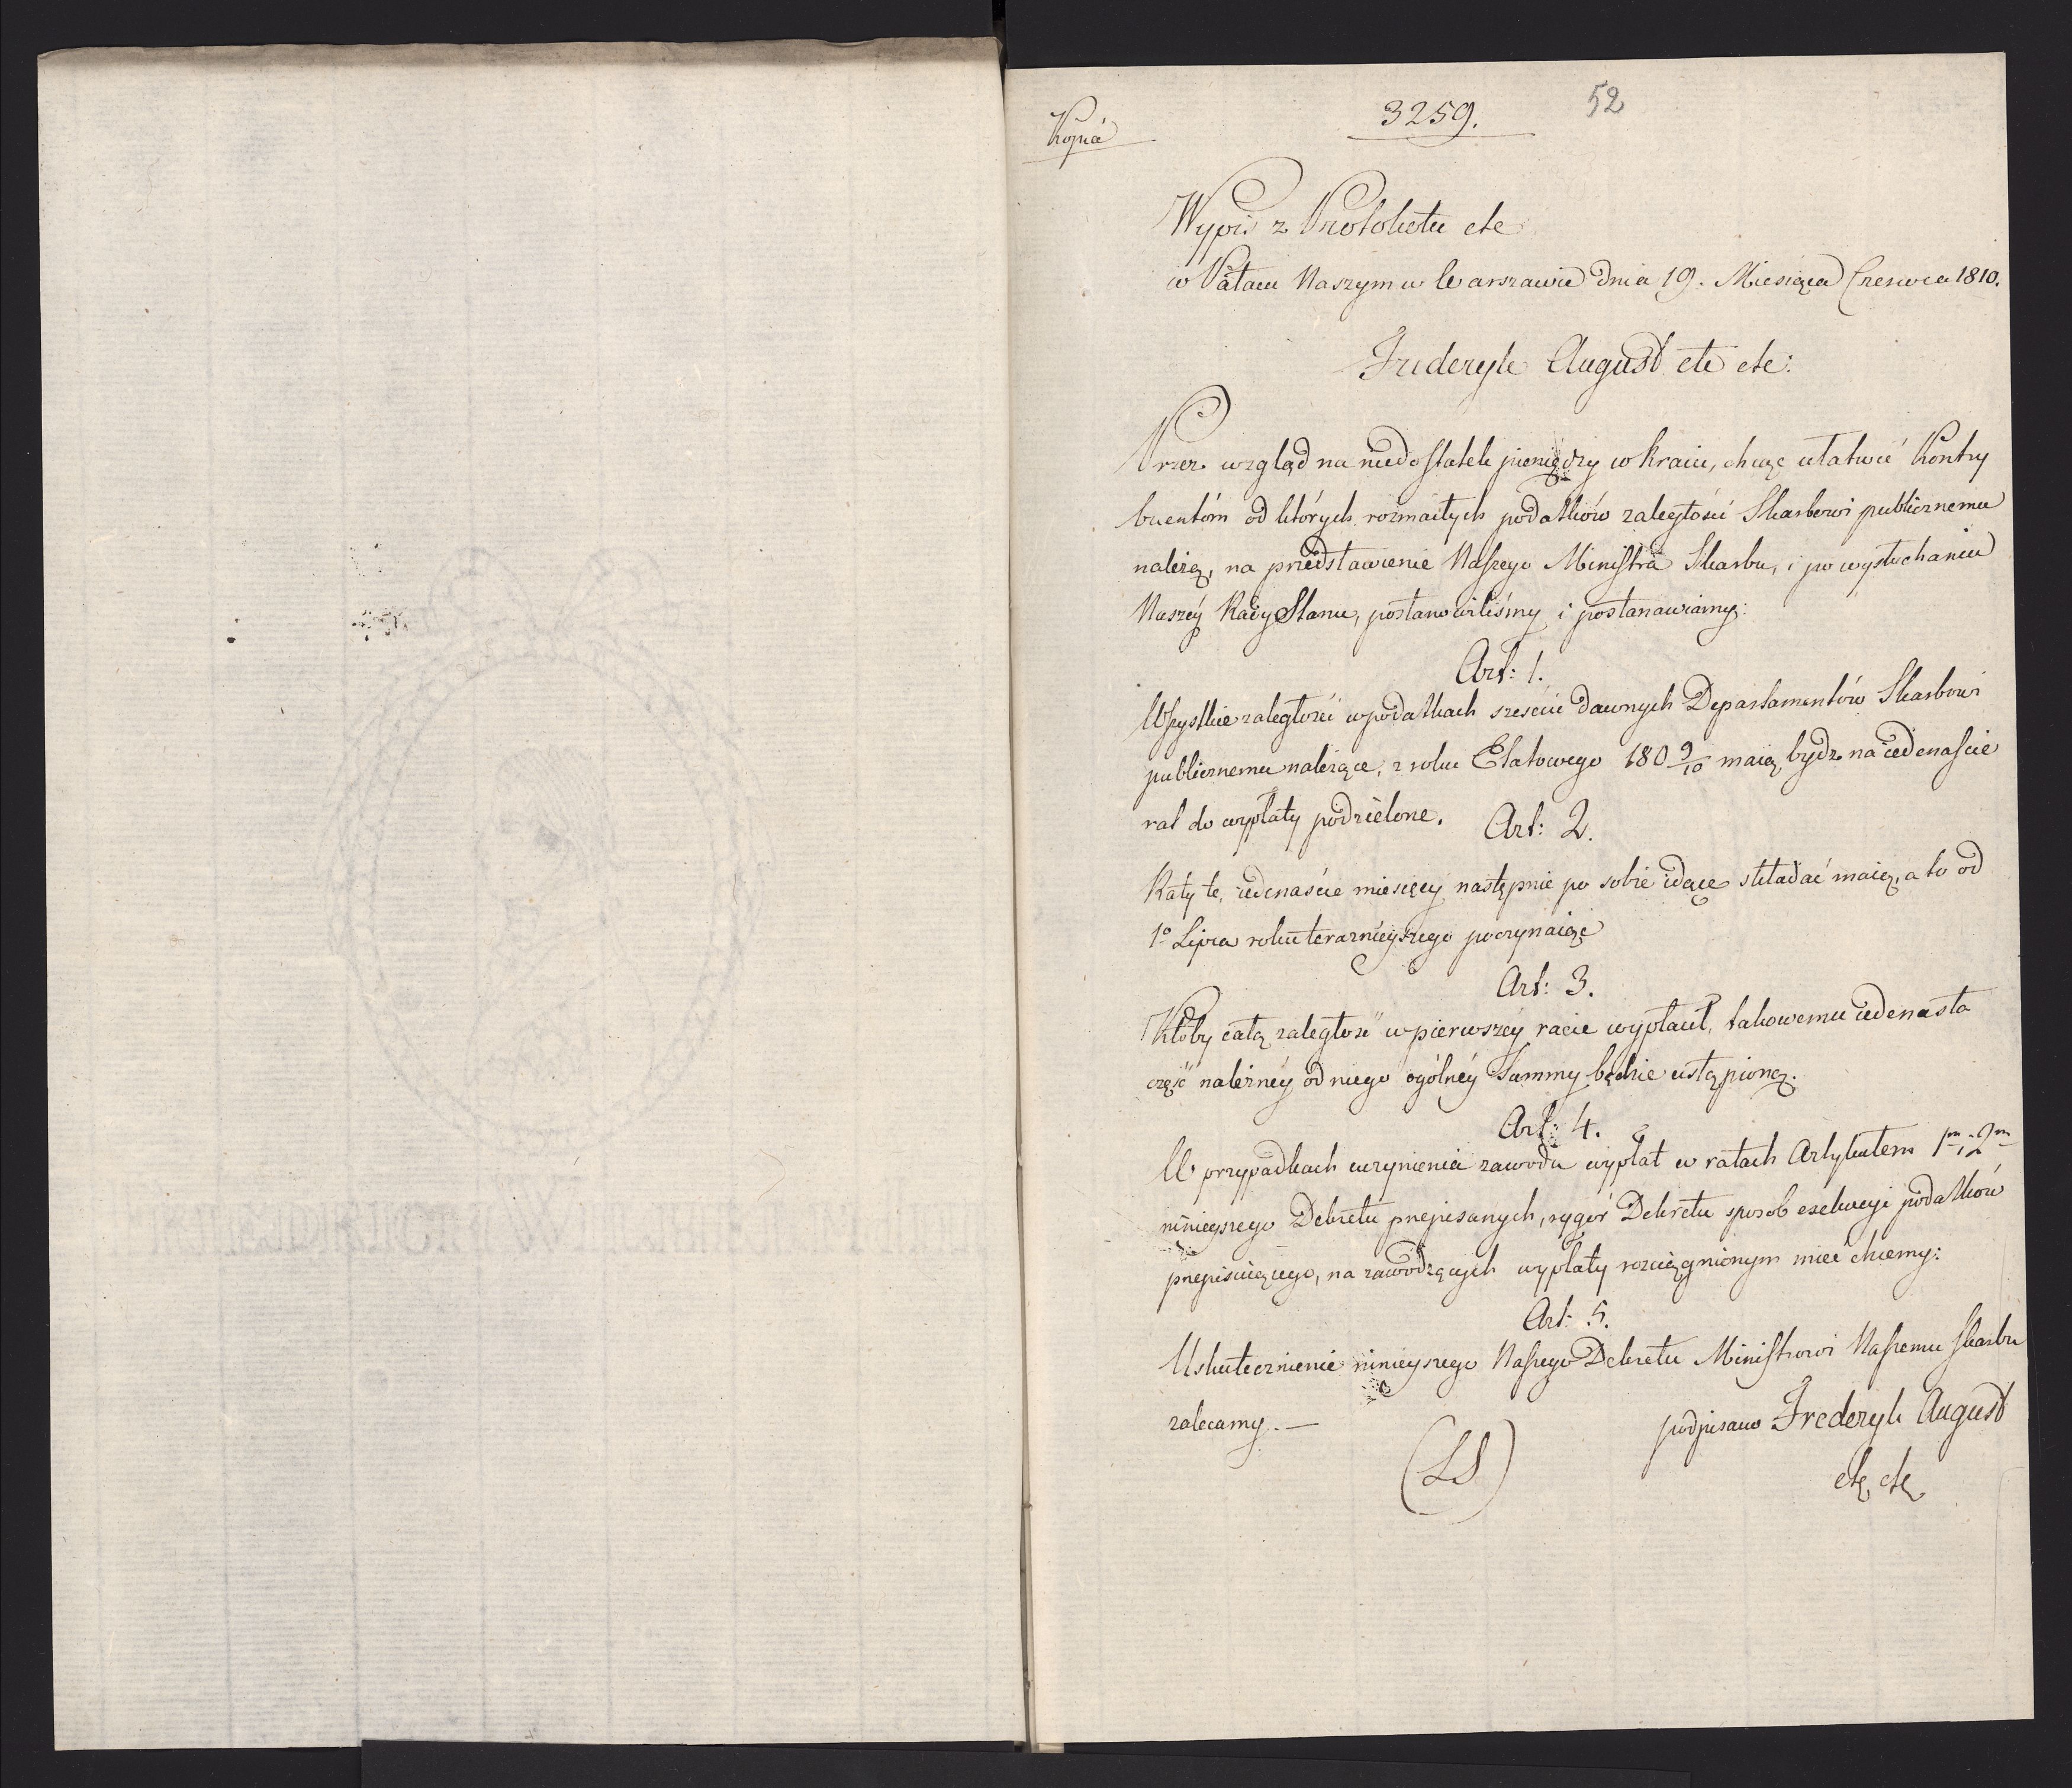 52
3259.
Kopiá
Wypis z Protokołu etc
w Pałacu Naszym w Warszawie dnia 19. Miesiąca Czerwca 1810.
Fryderyk August etc etc:
Przez wzgląd na niedostatek pieniędzy w kraiu, chcąc ułatwić Kontry
buentóm od których rozmaitych podatków zaległości Skarbowi publicznemu
należą, na przedstawienie Naszego Ministra Skarbu, i po wysłuchaniu
Naszéy Rady Stanu, postanowiliśmy i postanawiamy:
Art: 1.
Wszystkie zaległości w podatkach sześciu dawnych Departamentów Skarbowi
publicznemu należące, z roku Etatowego 180 9/10 maią bydz na iedenaście
rat do wypłaty podzielone.
Art: 2.
Raty te, iedenaście miesięcy następnie po sobie idące składać maią, a to od
1º Lipca roku terazniéyszego poczynaiąc
Art: 3.
Ktoby całą zaległość w pierwszéy racie wypłacił, takowemu iedenasta
część należnéy od niego ogólnéy Summy będzie ustąpioną.
Art: 4.
W przypadkach uczynienia zawodu wypłat w ratach Artykułem 1m i 2m
ninieyszego Dekretu przepisanych, rygor Dekretu sposob exekucyi podatków
przepisuiącego, na zawodzących wypłaty rozciągnionym mieć chcemy:
Art: 5.
Uskutecznienie ninieyszego Naszego Dekretu Ministrowi Naszemu Skarbu
zalecamy. —
podpisano Frederyk August
(LS)
etc etc